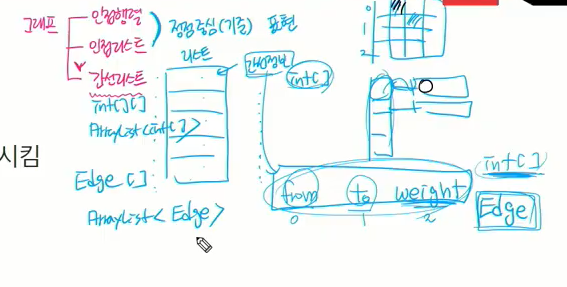 그래프
인접행렬
인접리스트
간선리스트
정점중심(기준) 표현
리스트
간선정보
int[]
int[][]
ArrayList<int[]>
Edge[]
ArrayList<Edge>
시킴
0
1
2
from to weight
0 1 2
int[]
Edge